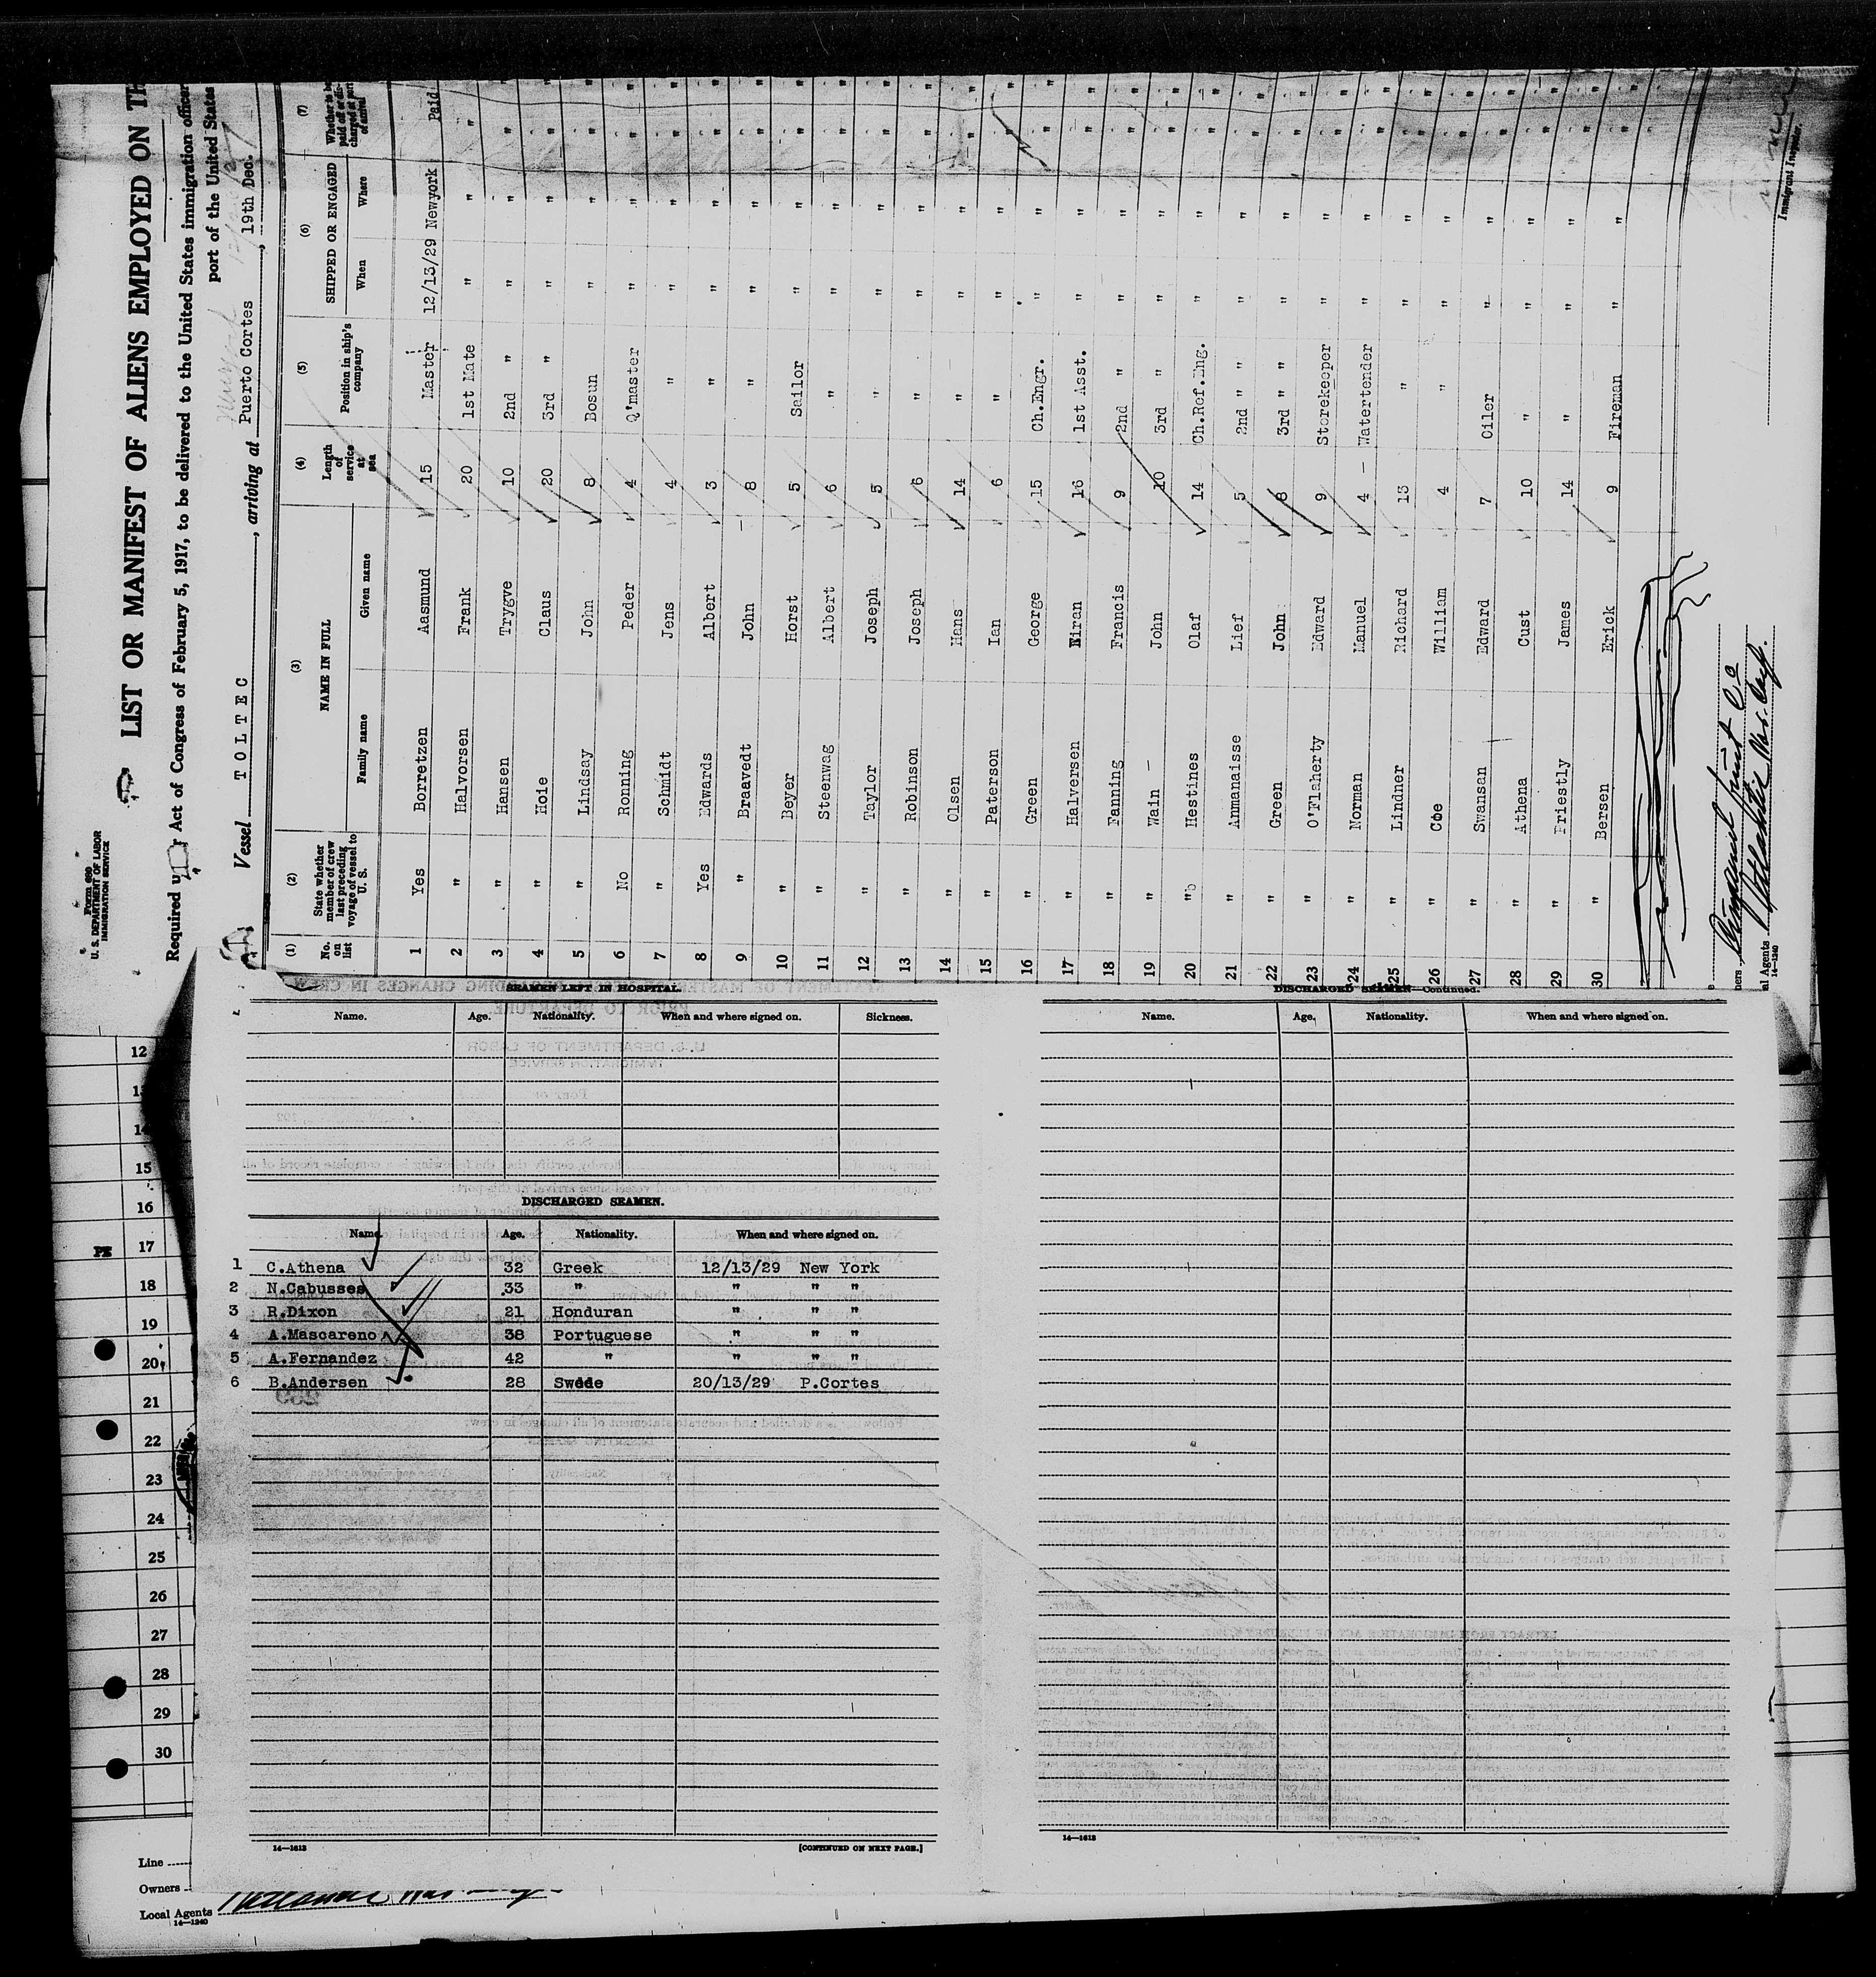 Form 680
U. S. DEPARTMENT OF LABOR
IMMIGRATION SERVICE
LIST OR MANIFEST OF ALIENS EMPLOYED ON TH
Act of Congress of February 5, 1917, to be delivered to the United States immigration officer
port of the United States
Vessel TOLTEC, arriving at Puerto Cortes, 19th Dec.
(1) (2) (3) (4) (5) (6) (7)
No. on list
State whether member of crew last preceding voyage of vessel to U. S.
NAME IN FULL
Family name Given name
Length of service at sea
Position in ship's company
SHIPPED OR ENGAGED
When Where
Whether to be paid off or discharged at port of arrival
1 Yes Borretzen Aasmund 15 Master 12/13/29 Newyork Paid
2 " Halvorsen Frank 20 1st Mate " " "
3 " Hansen Trygve 10 2nd " " " "
4 " Hoie Claus 20 3rd " " " "
5 " Lindsay John 8 Bosun " " "
6 No Ronning Peder 4 Q'master " " "
7 " Schmidt Jens 4 " " " "
8 Yes Edwards Albert 3 " " " "
9 " Braavedt John 8 " " " "
10 " Beyer Horst 5 Sailor " " "
11 " Steenwag Albert 6 " " " "
12 " Taylor Joseph 5 " " " "
13 " Robinson Joseph 6 " " " "
14 " Olsen Hans 14 " " " "
15 " Paterson Ian 6 " " " "
16 " Green George 15 Ch.Engr. " " "
17 " Halversen Kiran 16 1st Asst. " " "
18 " Fanning Francis 9 2nd " " " "
19 " Wain John 10 3rd " " " "
20 " Hestines Olaf 14 Ch.Ref.Eng. " " "
21 " Anmanaisse Lief 5 2nd " " " " "
22 " Green John 8 3rd " " " " "
23 " O'Flaherty Edward 9 Storekeeper " " "
24 " Norman Manuel 4 Watertender " " "
25 " Lindner Richard 13 " " " "
26 " Coe William 4 " " " "
27 " Swansan Edward 7 Oiler " " "
28 " Athena Cust 10 " " " "
29 " Priestly James 14 " " " "
30 " Bersen Erick 9 Fireman " " "
Immigrant Inspector.
al Agents
14—1240
SEAMEN LEFT IN HOSPITAL.
Name. Age. Nationality. When and where signed on. Sickness.
DISCHARGED SEAMEN.
Name. Age. Nationality. When and where signed on.
1 C.Athena 32 Greek 12/13/29 New York
2 N.Cabusses 33 " " " "
3 R.Dixon 21 Honduran " " "
4 A.Mascareno 38 Portuguese " " "
5 A.Fernandez 42 " " " "
6 B.Andersen 28 Swede 20/13/29 P.Cortes
14—1613
[CONTINUED ON NEXT PAGE.]
DISCHARGED SEAMEN—Continued.
Name. Age. Nationality. When and where signed on.
14—1613
12
13
14
15
16
17
18
19
20
21
22
23
24
25
26
27
28
29
30
Line
Owners
Local Agents
14—1240